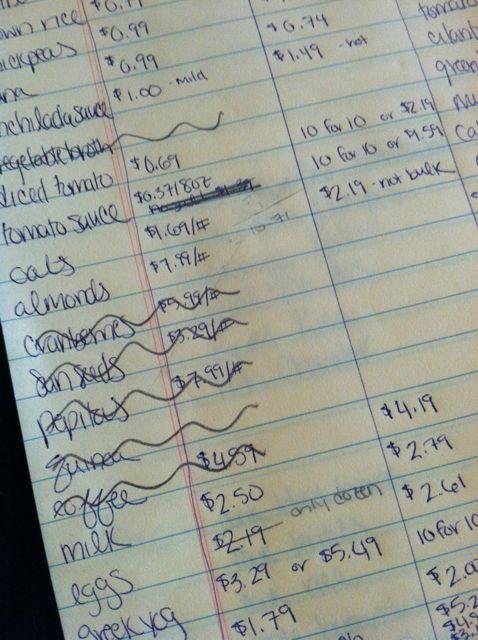 own rice $0.99 $0.74
chickpeas 0.99 $1.49 - not
$1.00 - mild
enchilada sauce
vegetable broth 10 for 10 or $2.19
diced tomato $0.69 10 for 10 or 4.59
tomato sauce $0.37/80z $2.19 - not bulk
oats $1.69/#
almonds $7.99/#
cranberries $5.99/#
sun seeds $3.29/#
pepitas $7.99/#
quinoa
coffee $4.59 $4.19
milk $2.50 $2.79
eggs $2.19 only dozen $2.61
greek yog $3.29 or $5.49 10 for 10
$1.79